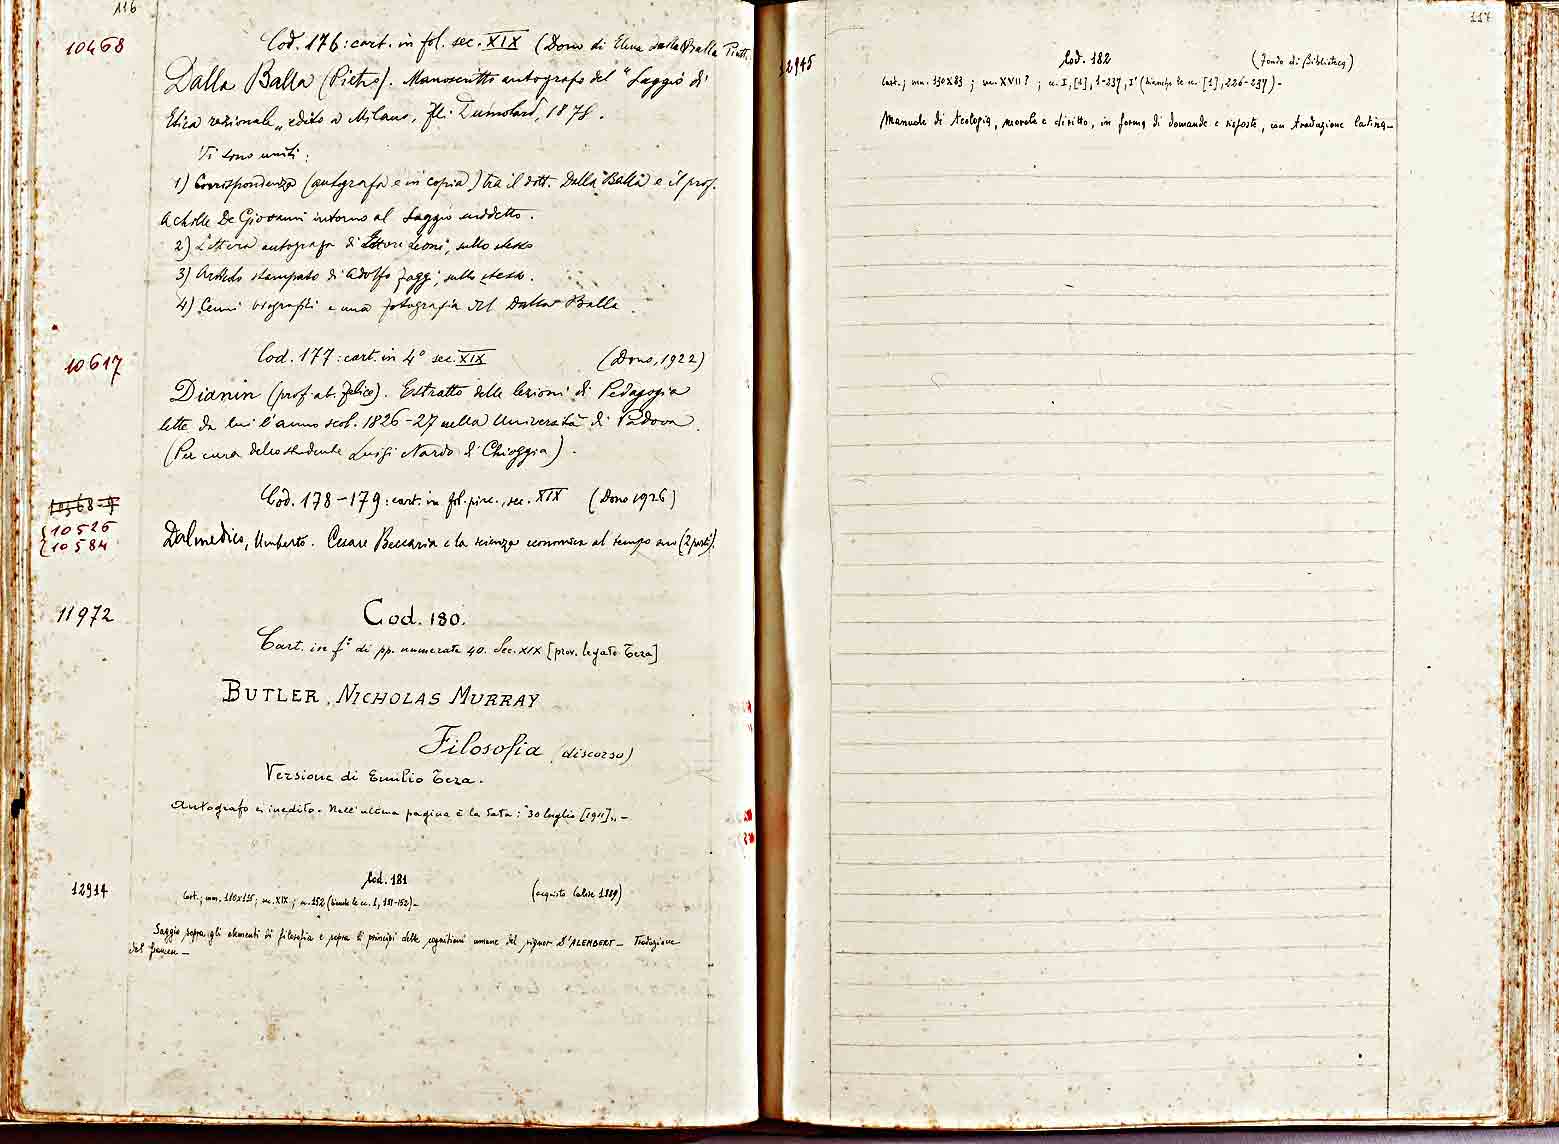 116
10468
Cod. 176: cart. in fol. sec. XIX (Dono di Elena dalla Balla
Dalla Balla (Pietro). Manoscritto autografo del "Saggio di
Etica razionale" edito a Milano, Fll. Dumolard, 1878.
Vi sono uniti:
1) Corrispondenza (autografa e in copia) tra il dott. Dalla Balla e il prof.
Achille De Giovanni intorno al Saggio suddetto.
2) Lettera autografa di Ettore Leoni, sullo stesso
3) Articolo stampato di Adolfo Faggi, sullo stesso.
4) Cenni biografici e una fotografia del Dalla Balla.
10617
Cod. 177: cart. in 4° sec. XIX (Dono, 1922)
Dianin (prof. ab. Felice). Estratto delle lezioni di Pedagogia
lette da lui l'anno scol. 1826-27 nella Università di Padova.
(Per cura dello studente Luigi Nardo di Chioggia).
10568-9
10526
10584
Cod. 178-179: cart. in fol. picc., sec. XIX (Dono 1926)
Dalmedico, Umberto. Cesare Beccaria e la scienza economica al tempo suo (2 parti).
11972
Cod. 180.
Cart. in f.° di pp. numerate 40. Sec. XIX [prov. legato Teza]
BUTLER, NICHOLAS MURRAY
Filosofia (discorso)
Versione di Emilio Teza.
Autografo e inedito. Nell'ultima pagina è la data: "30 luglio [1911]". -
12914
Cod. 181
(acquisto Calore 1889)
Cart.; mm. 180x115; sec. XIX; cc. 152 (bianche le cc. 1, 151-152) -
Saggio sopra gli elementi di filosofia e sopra li principi delle cognizioni umane del signor D'ALEMBERT - Traduzione
del francese -
117
12945
Cod. 182
(Fondo di Biblioteca)
Cart.; mm. 130x83; sec. XVII?; cc. I, [1], 1-237, I' (bianche le cc. [1], 226-237) -
Manuale di teologia, morale e diritto, in forma di domande e risposte, con traduzione latina -